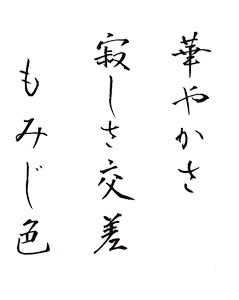 華やかさ
寂しさ交差
もみじ色